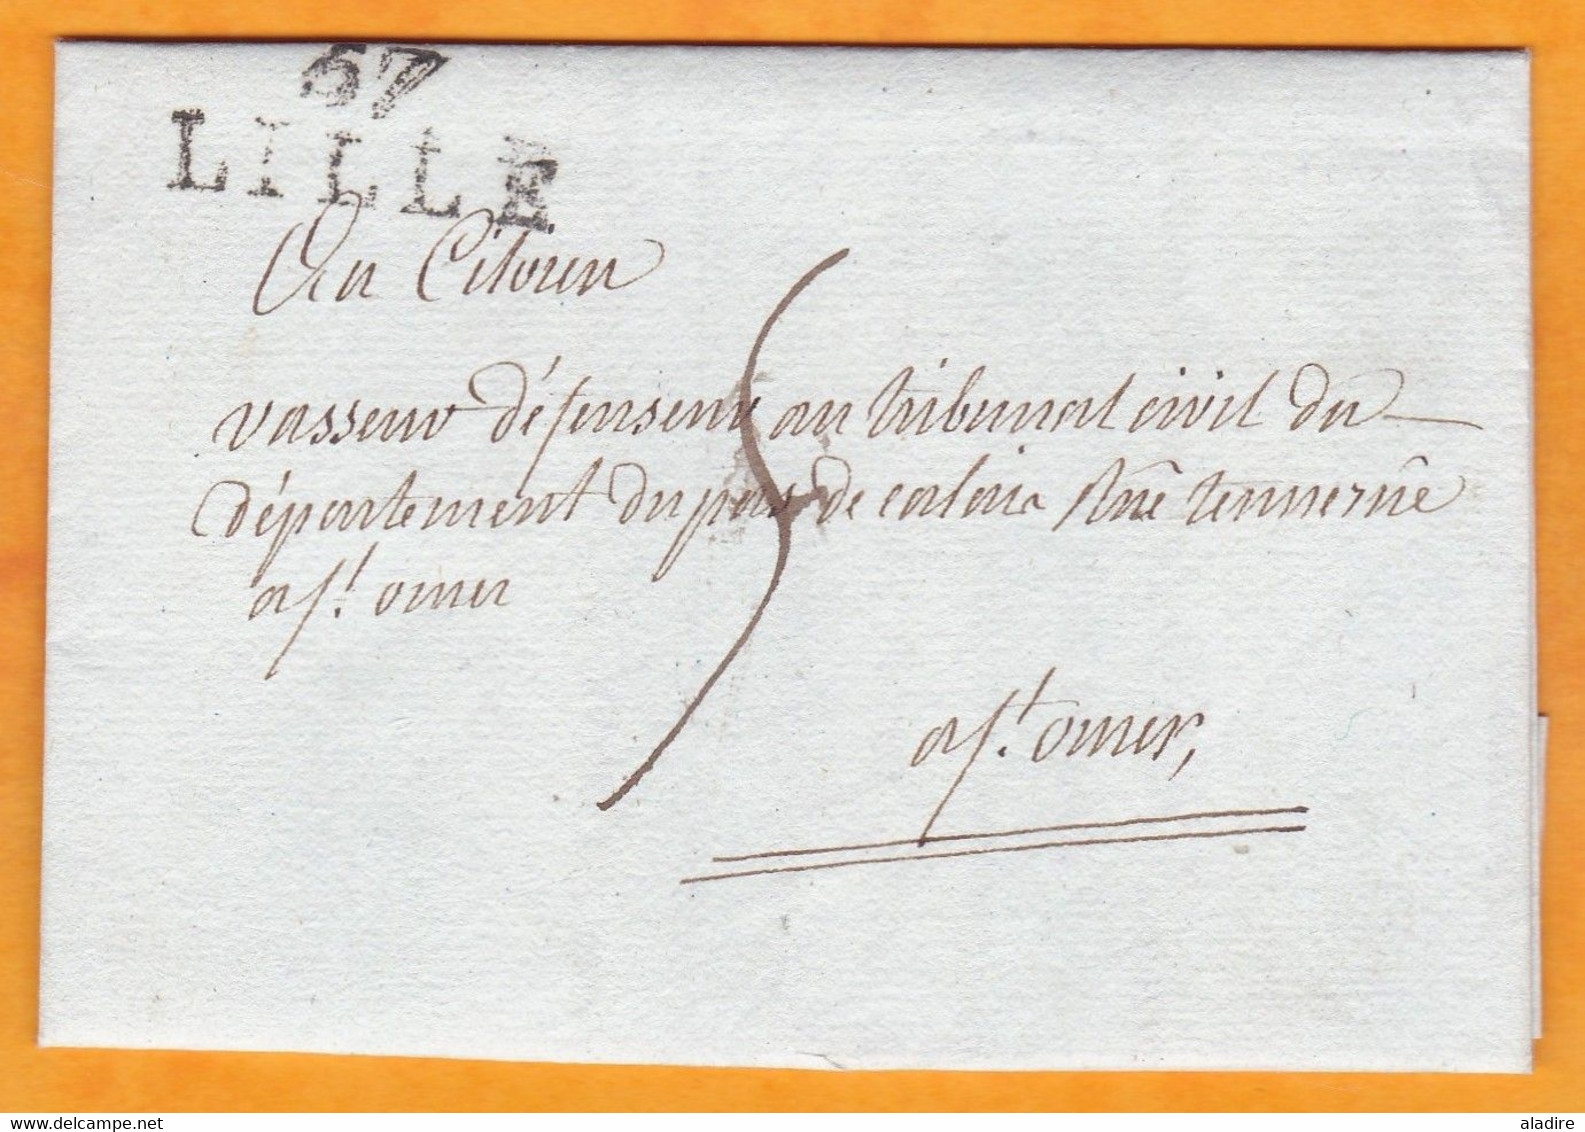 57
LILLE
Au Citoien
5
vasseur défenseur au tribunal civil du
département du pas de calais Rüe tenneruë
a st. omer
a st. omer,
www.delcampe.net
aladire